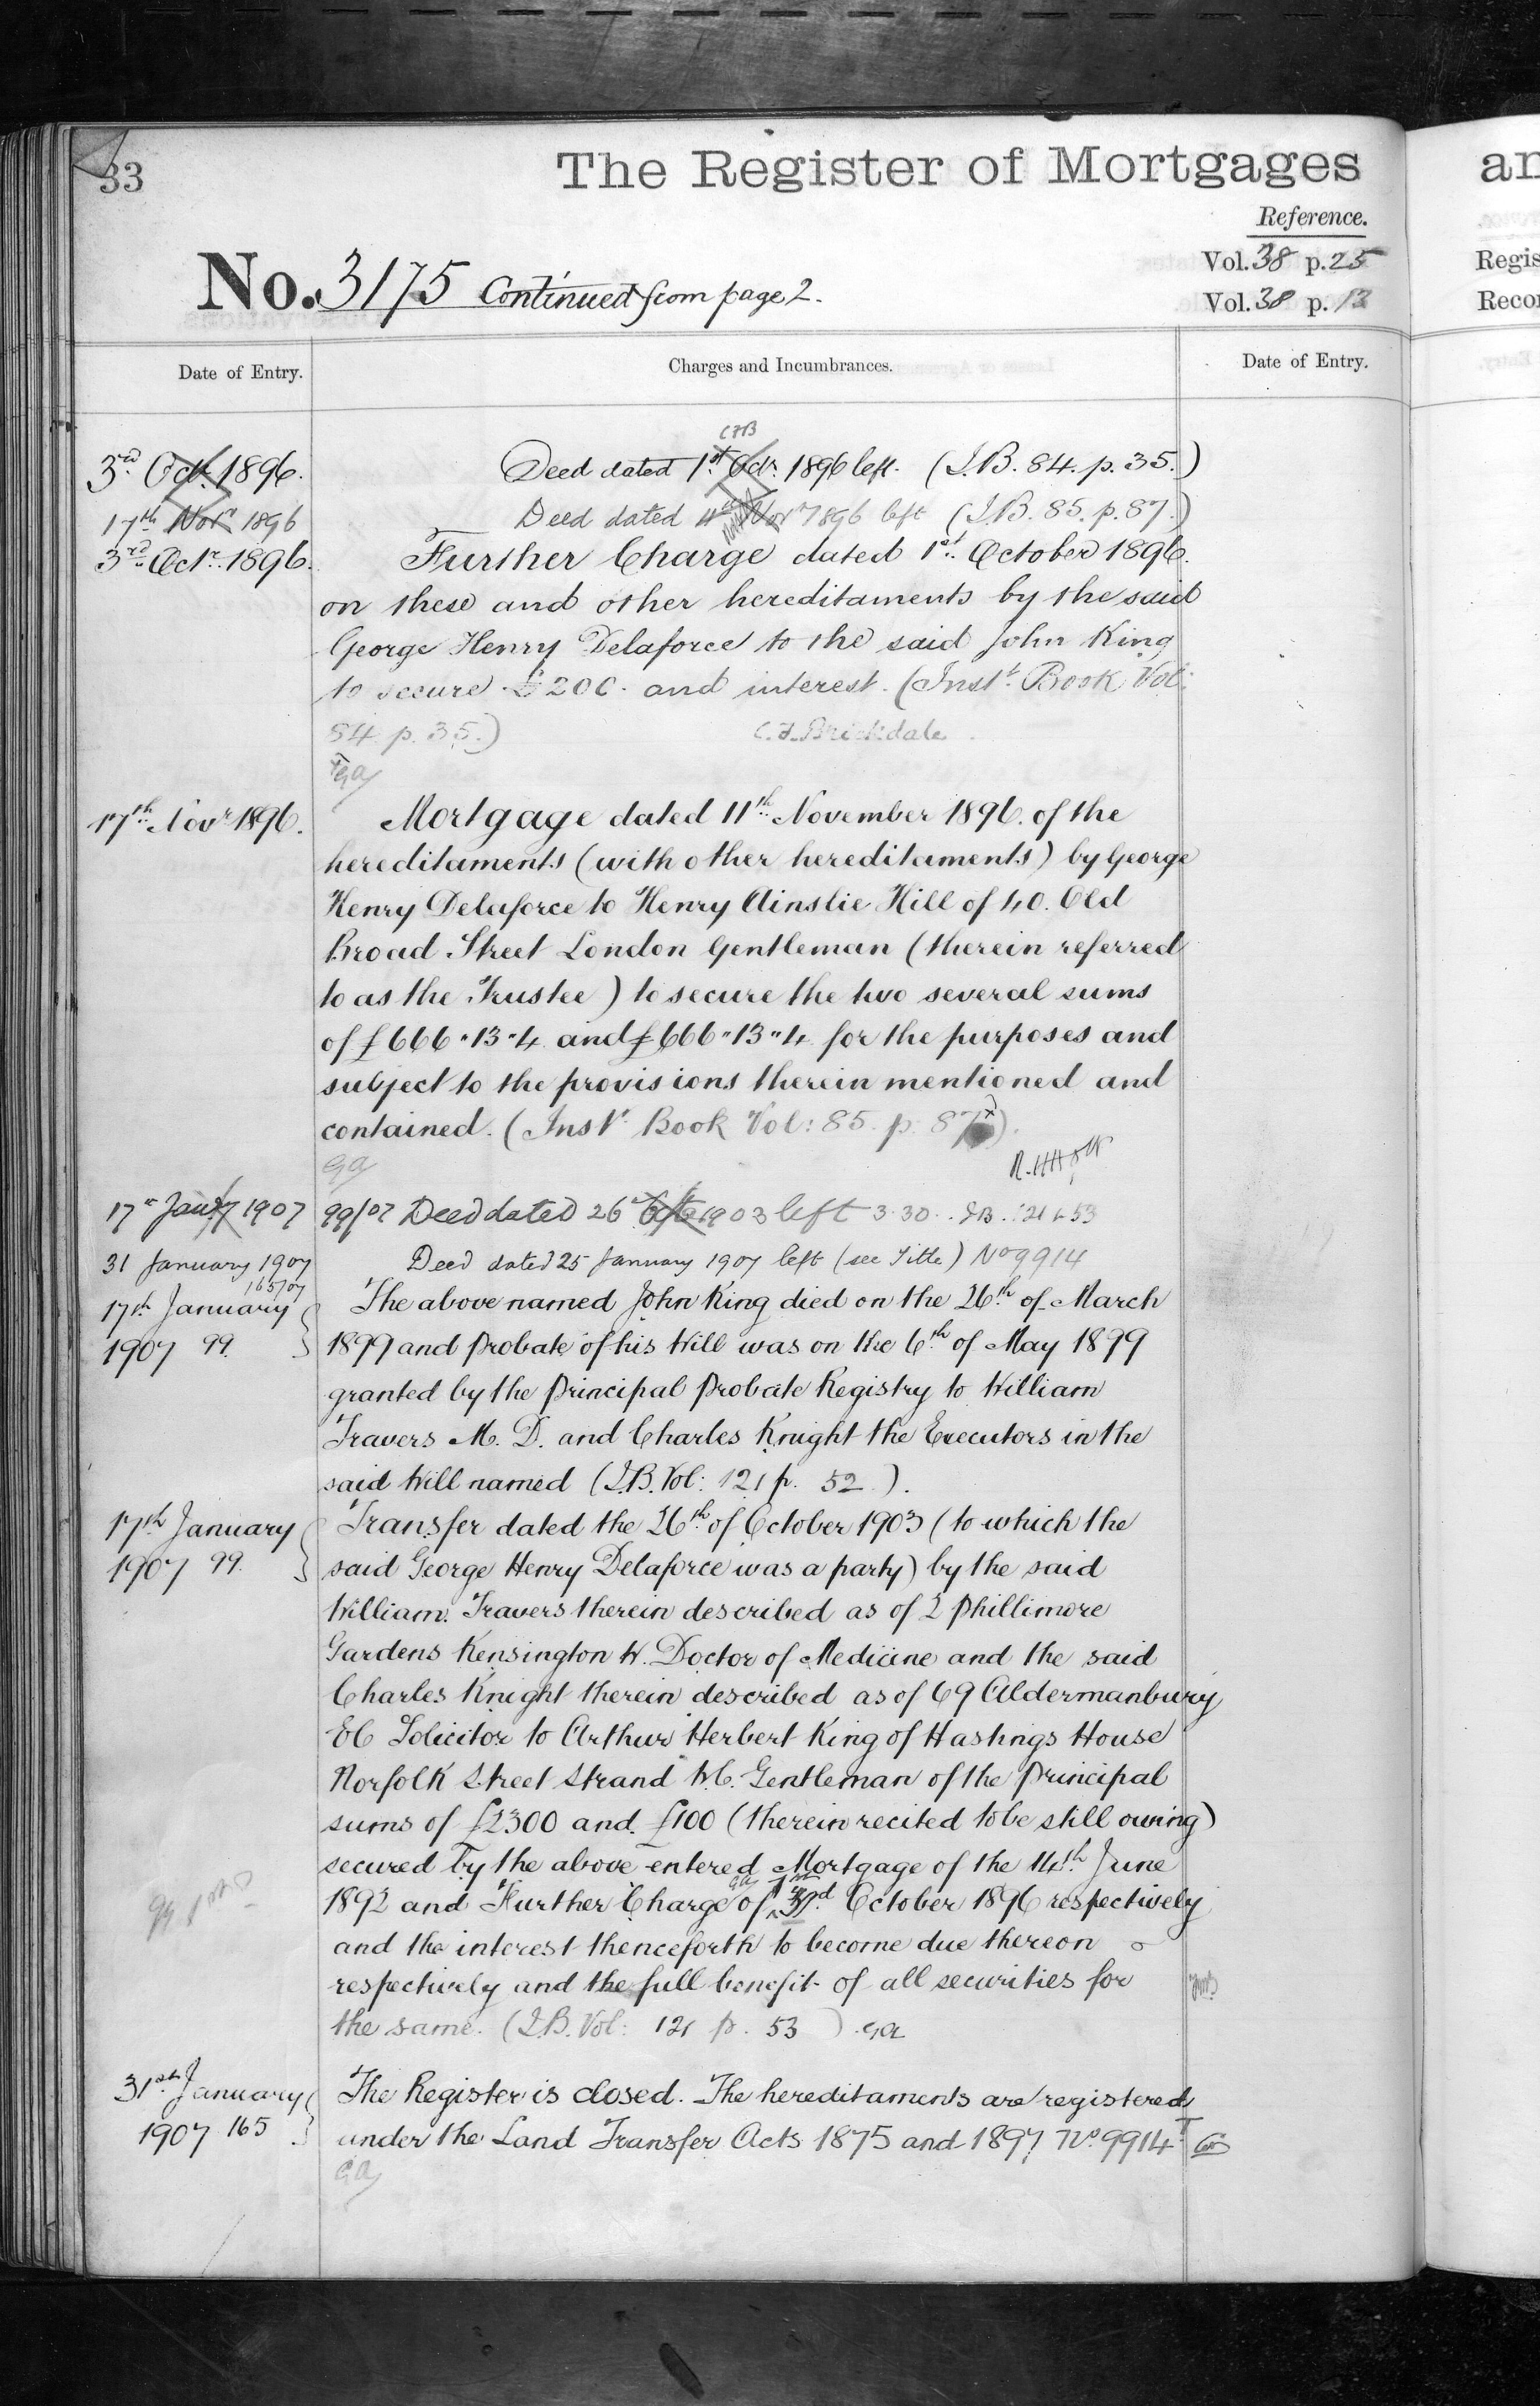 33
The Register of Mortgages
Reference.
No. 3175 Continued from page 2.
Vol. 38 p. 25
Vol. 38 p. 13
Date of Entry.
Charges and Incumbrances.
Date of Entry.
CFB
3rd Octr. 1896. Deed dated 1st Octr. 1896 left. (I.B. 84. p. 35.)
17th Novr 1896 Deed dated 11th Novr 1896 left (I.B. 85. p. 87.)
3rd Octr. 1896. Further Charge dated 1st October 1896.
on these and other hereditaments by the said
George Henry Delaforce to the said John King
to secure £200. and interest. (Inst. Book Vol:
84 p. 35.) C.F. Brickdale
GA
17th Novr 1896. Mortgage dated 11th November 1896. of the
hereditaments (with other hereditaments) by George
Henry Delaforce to Henry Ainslie Hill of 40. Old
Broad Street London Gentleman (therein referred
to as the Trustee) to secure the two several sums
of £666"13"4 and £666"13"4 for the purposes and
subject to the provisions therein mentioned and
contained. (Inst. Book Vol: 85. p. 87)
GA
17th Jany 1907 99/07 Deed dated 26th Octr 1903 left 3.30. I.B. 121 p 53
31 January 1907 Deed dated 25 January 1907 left (see Title) No 9914
165/07
17th January The above named John King died on the 26th of March
1907 99. 1899 and Probate of his Will was on the 6th of May 1899
granted by the Principal Probate Registry to William
Travers M. D. and Charles Knight the Executors in the
said Will named (I.B. Vol: 121 p. 52 ).
17th January Transfer dated the 26th of October 1903 (to which the
1907 99. said George Henry Delaforce was a party) by the said
William Travers therein described as of 2 Phillimore
Gardens Kensington W. Doctor of Medicine and the said
Charles Knight therein described as of 69 Aldermanbury
EC Solicitor to Arthur Herbert King of Hastings House
Norfolk Street Strand W.C. Gentleman of the Principal
sums of £2300 and £100 (therein recited to be still owing)
secured by the above entered Mortgage of the 14th June
GA 1st
1892 and Further Charge of 3rd October 1896 respectively
and the interest thenceforth to become due thereon
respectively and the full benefit of all securities for
the same. (I.B. Vol: 121 p. 53 ) GA
31st January The Register is closed. The hereditaments are registered
1907 165 under the Land Transfer Acts 1875 and 1897 No. 9914
GA
an
Regis
Recor